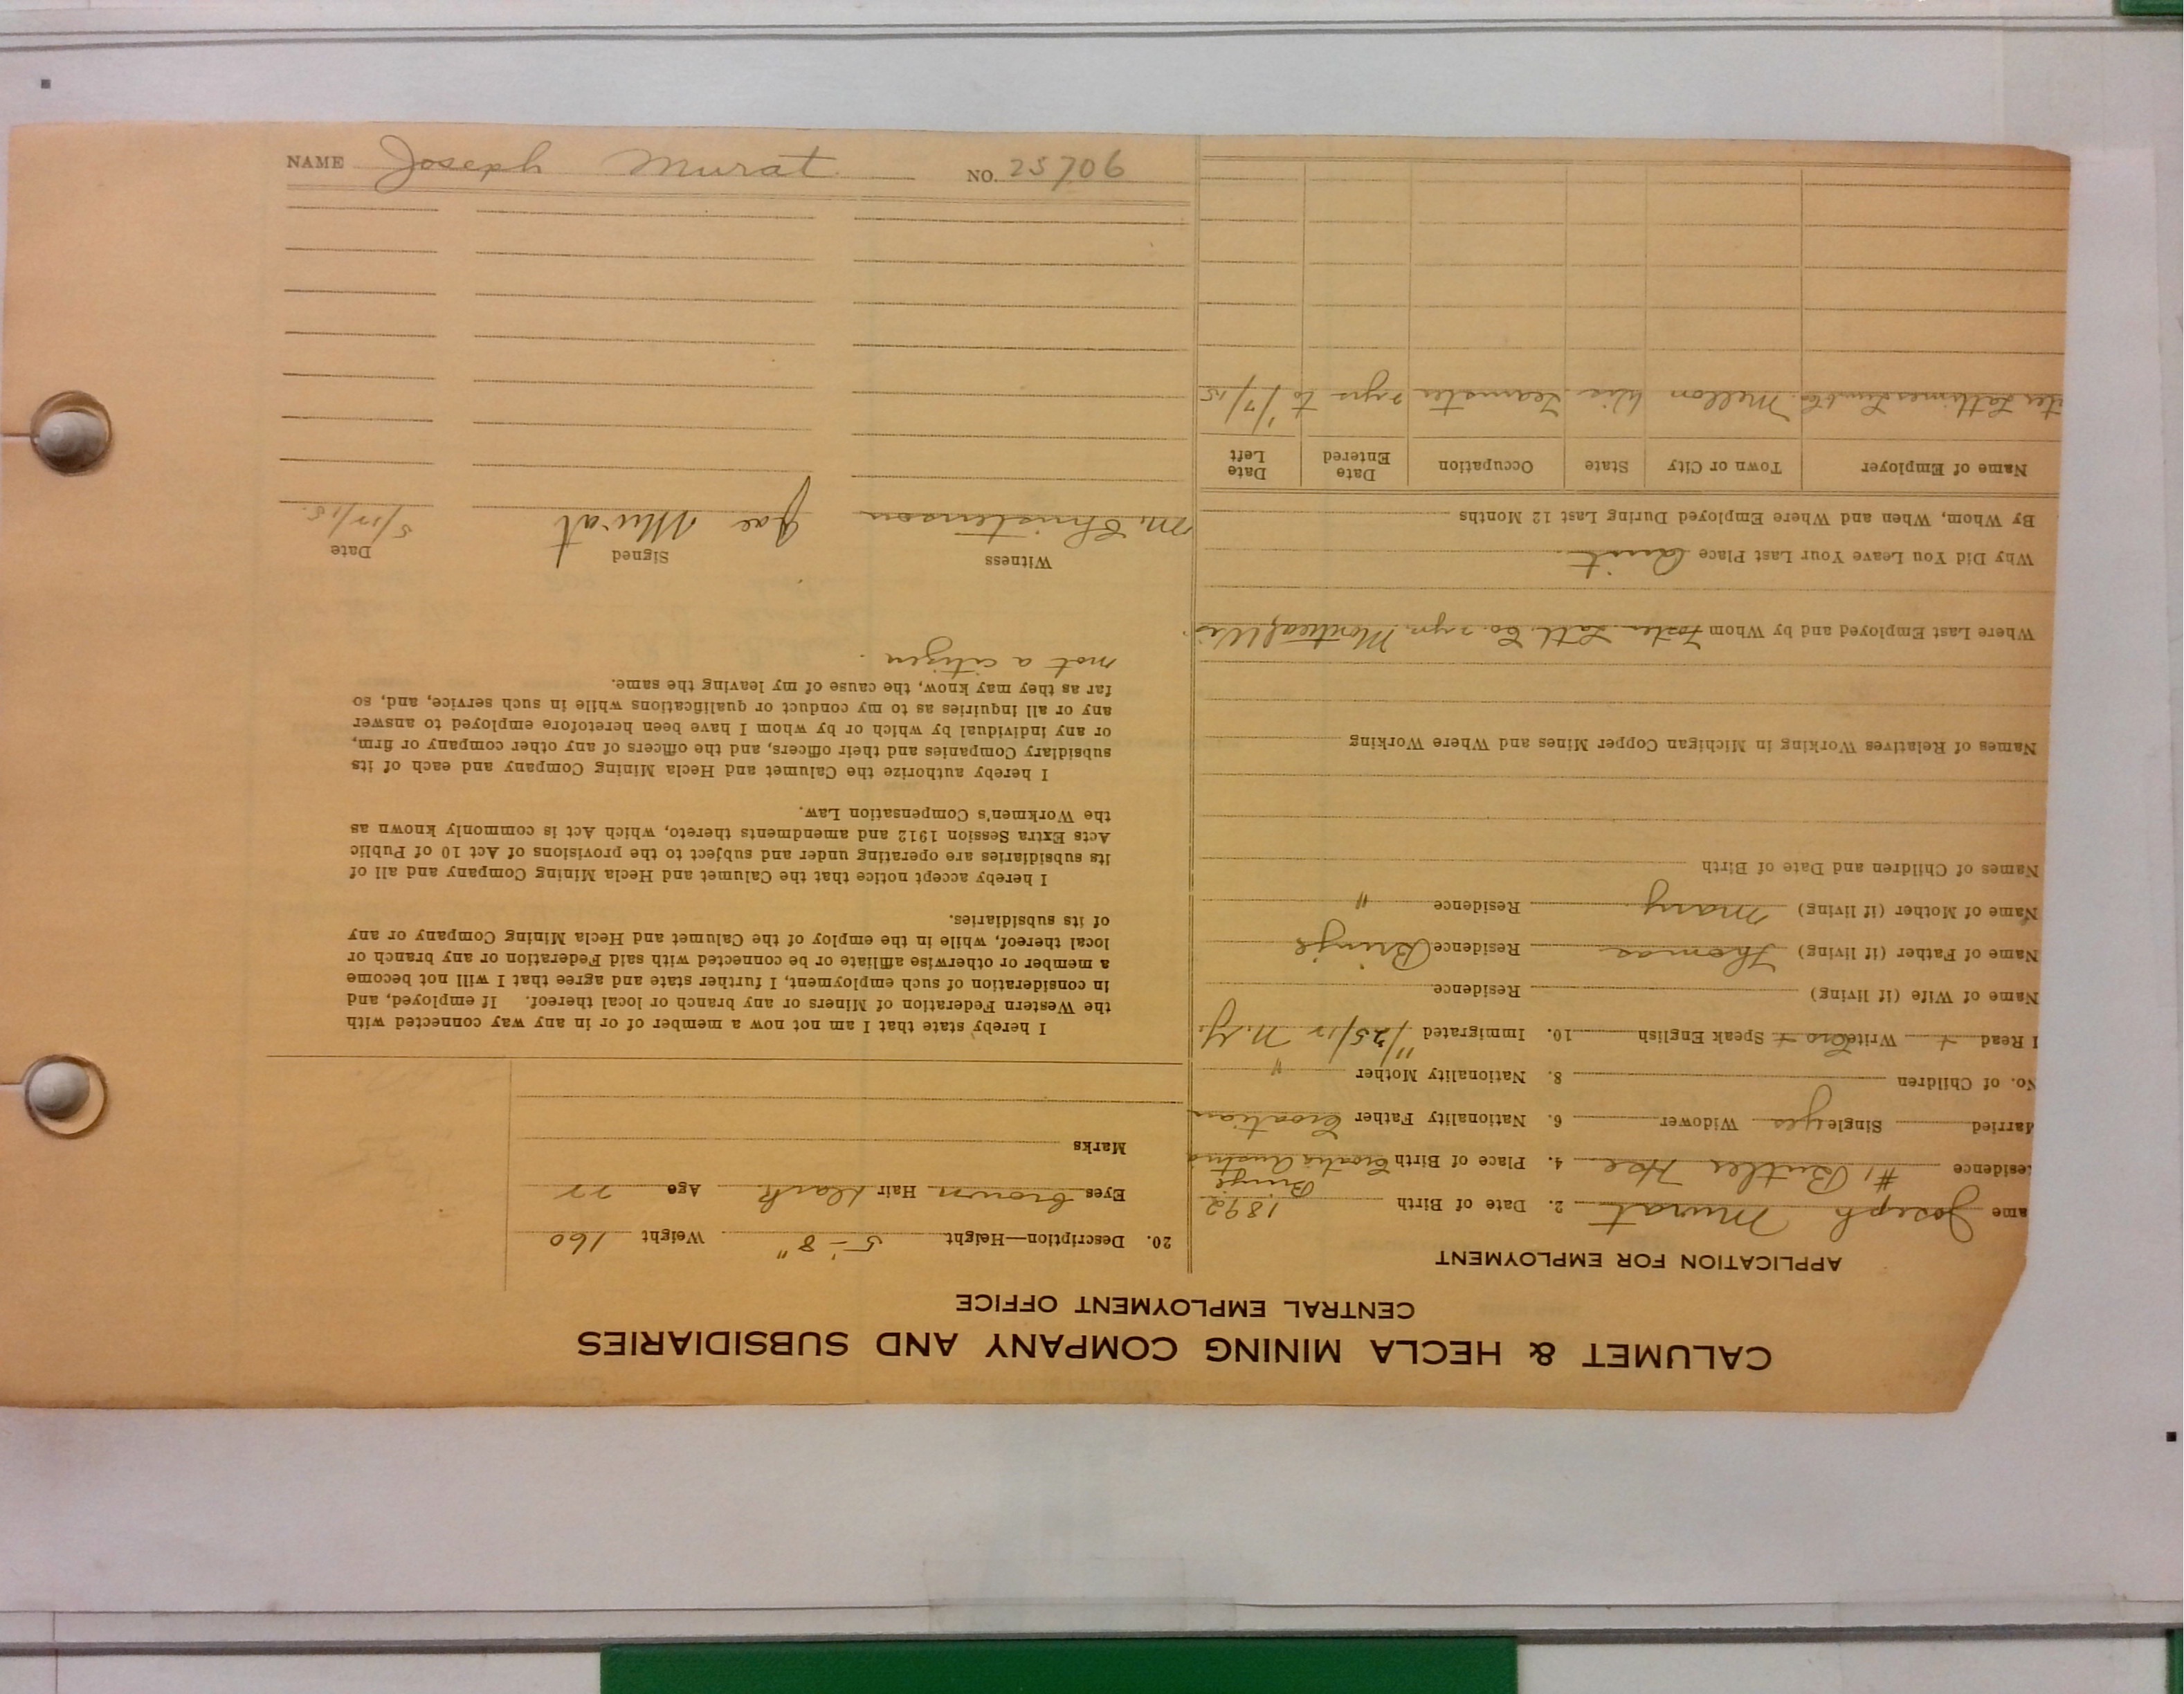 CALUMET & HECLA MINING COMPANY AND SUBSIDIARIES
CENTRAL EMPLOYMENT OFFICE
APPLICATION FOR EMPLOYMENT
ame Joseph Murat 2. Date of Birth 1892
esidence #1 Butler Hse 4. Place of Birth Croatia Austria
arried Single yes Widower 6. Nationality Father Croatian
No. of Children 8. Nationality Mother "
I Read + Write Cro + Speak English 10. Immigrated 11/25/12 N.Y.
Name of Wife (if living) Residence
Name of Father (if living) Thomas Residence Brinje
Name of Mother (if living) Mary Residence "
Names of Children and Date of Birth
Names of Relatives Working in Michigan Copper Mines and Where Working
Where Last Employed and by Whom Foster Lath. Co. 2 yrs. Montreal Wis
Why Did You Leave Your Last Place Quit
By Whom, When and Where Employed During Last 12 Months
Name of Employer Town or City State Occupation Date Entered Date Left
Mellon Wis Teamster 2 yrs to 1/7/15
20. Description—Height 5'-8" Weight 160
Eyes brown Hair dark Age 22
Marks
I hereby state that I am not now a member of or in any way connected with
the Western Federation of Miners or any branch or local thereof. If employed, and
in consideration of such employment, I further state and agree that I will not become
a member or otherwise affiliate or be connected with said Federation or any branch or
local thereof, while in the employ of the Calumet and Hecla Mining Company or any
of its subsidiaries.
I hereby accept notice that the Calumet and Hecla Mining Company and all of
its subsidiaries are operating under and subject to the provisions of Act 10 of Public
Acts Extra Session 1912 and amendments thereto, which Act is commonly known as
the Workmen's Compensation Law.
I hereby authorize the Calumet and Hecla Mining Company and each of its
subsidiary Companies and their officers, and the officers of any other company or firm,
or any individual by which or by whom I have been heretofore employed to answer
any or all inquiries as to my conduct or qualifications while in such service, and, so
far as they may know, the cause of my leaving the same.
not a citizen.
Witness Signed Date
M. Christenson Joe Murat 5/17/15.
NAME Joseph Murat NO. 25706